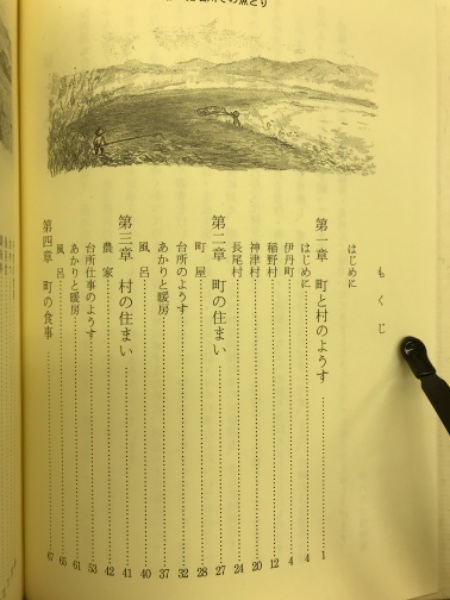 もくじ
はじめに
第一章 町と村のようす 1
はじめに 4
伊丹町 4
稲野村 12
神津村 20
長尾村 24
第二章 町の住まい 27
町屋 28
台所のようす 32
あかりと暖房 37
風呂 40
第三章 村の住まい 41
農家 42
台所仕事のようす 53
あかりと暖房 61
風呂 65
第四章 町の食事 67